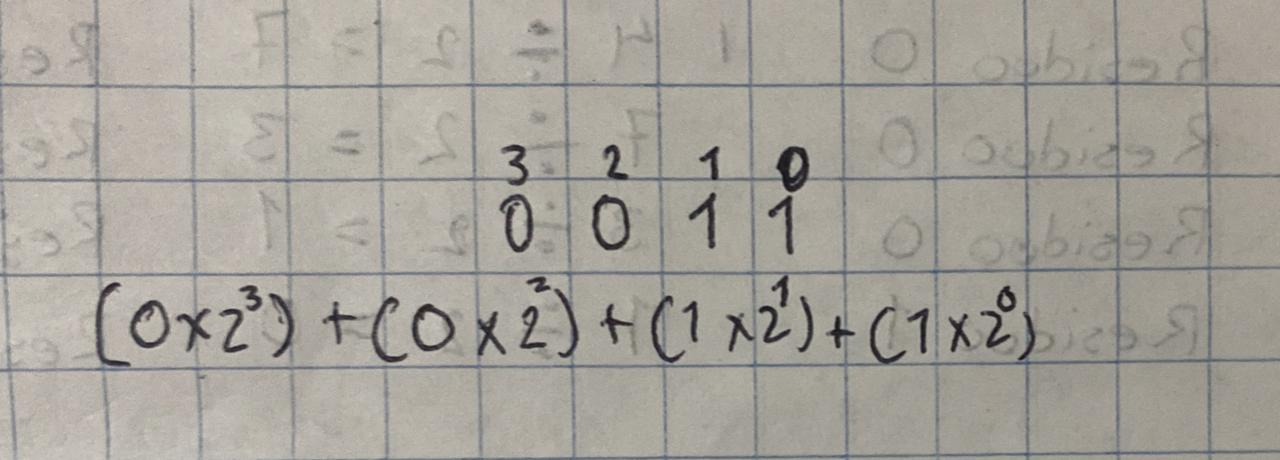 3 2 1 0
0 0 1 1
(0x2³) + (0x2²) + (1x2¹) + (1x2⁰)